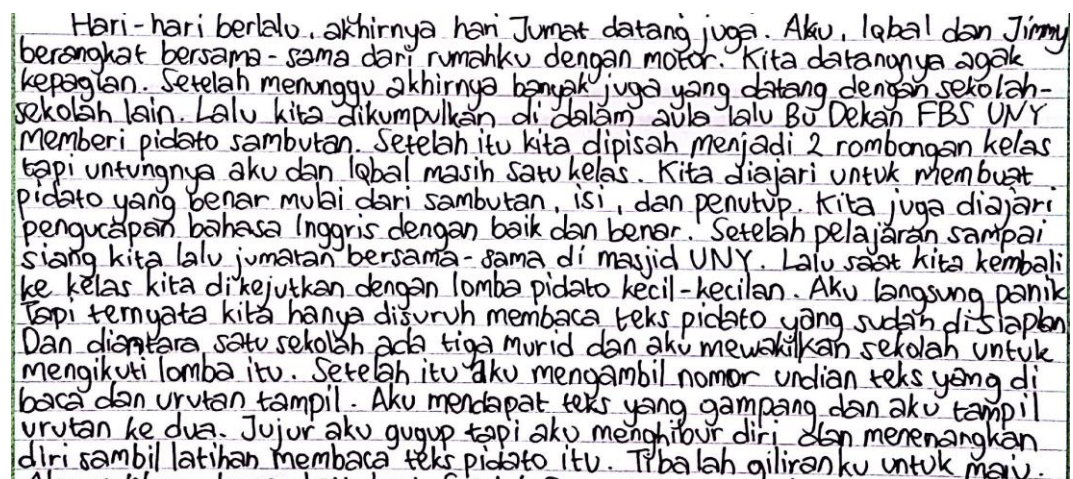 Hari-hari berlalu, akhirnya hari Jumat datang juga. Aku, Iqbal dan Jimmy
berangkat bersama-sama dari rumahku dengan motor. Kita datangnya agak
kepagian. Setelah menunggu akhirnya banyak juga yang datang dengan sekolah-
sekolah lain. Lalu kita dikumpulkan di dalam aula lalu Bu Dekan FBS UNY
memberi pidato sambutan. Setelah itu kita dipisah menjadi 2 rombongan kelas
tapi untungnya aku dan Iqbal masih satu kelas. Kita diajari untuk membuat
pidato yang benar mulai dari sambutan, isi, dan penutup. Kita juga diajari
pengucapan bahasa Inggris dengan baik dan benar. Setelah pelajaran sampai
siang kita lalu jumatan bersama-sama di masjid UNY. Lalu saat kita kembali
ke kelas kita dikejutkan dengan lomba pidato kecil-kecilan. Aku langsung panik
Tapi ternyata kita hanya disuruh membaca teks pidato yang sudah disiapkan
Dan diantara satu sekolah ada tiga murid dan aku mewakilkan sekolah untuk
mengikuti lomba itu. Setelah itu aku mengambil nomor undian teks yang di
baca dan urutan tampil. Aku mendapat teks yang gampang dan aku tampil
urutan ke dua. Jujur aku gugup tapi aku menghibur diri dan menenangkan
diri sambil latihan membaca teks pidato itu. Tibalah giliranku untuk maju.